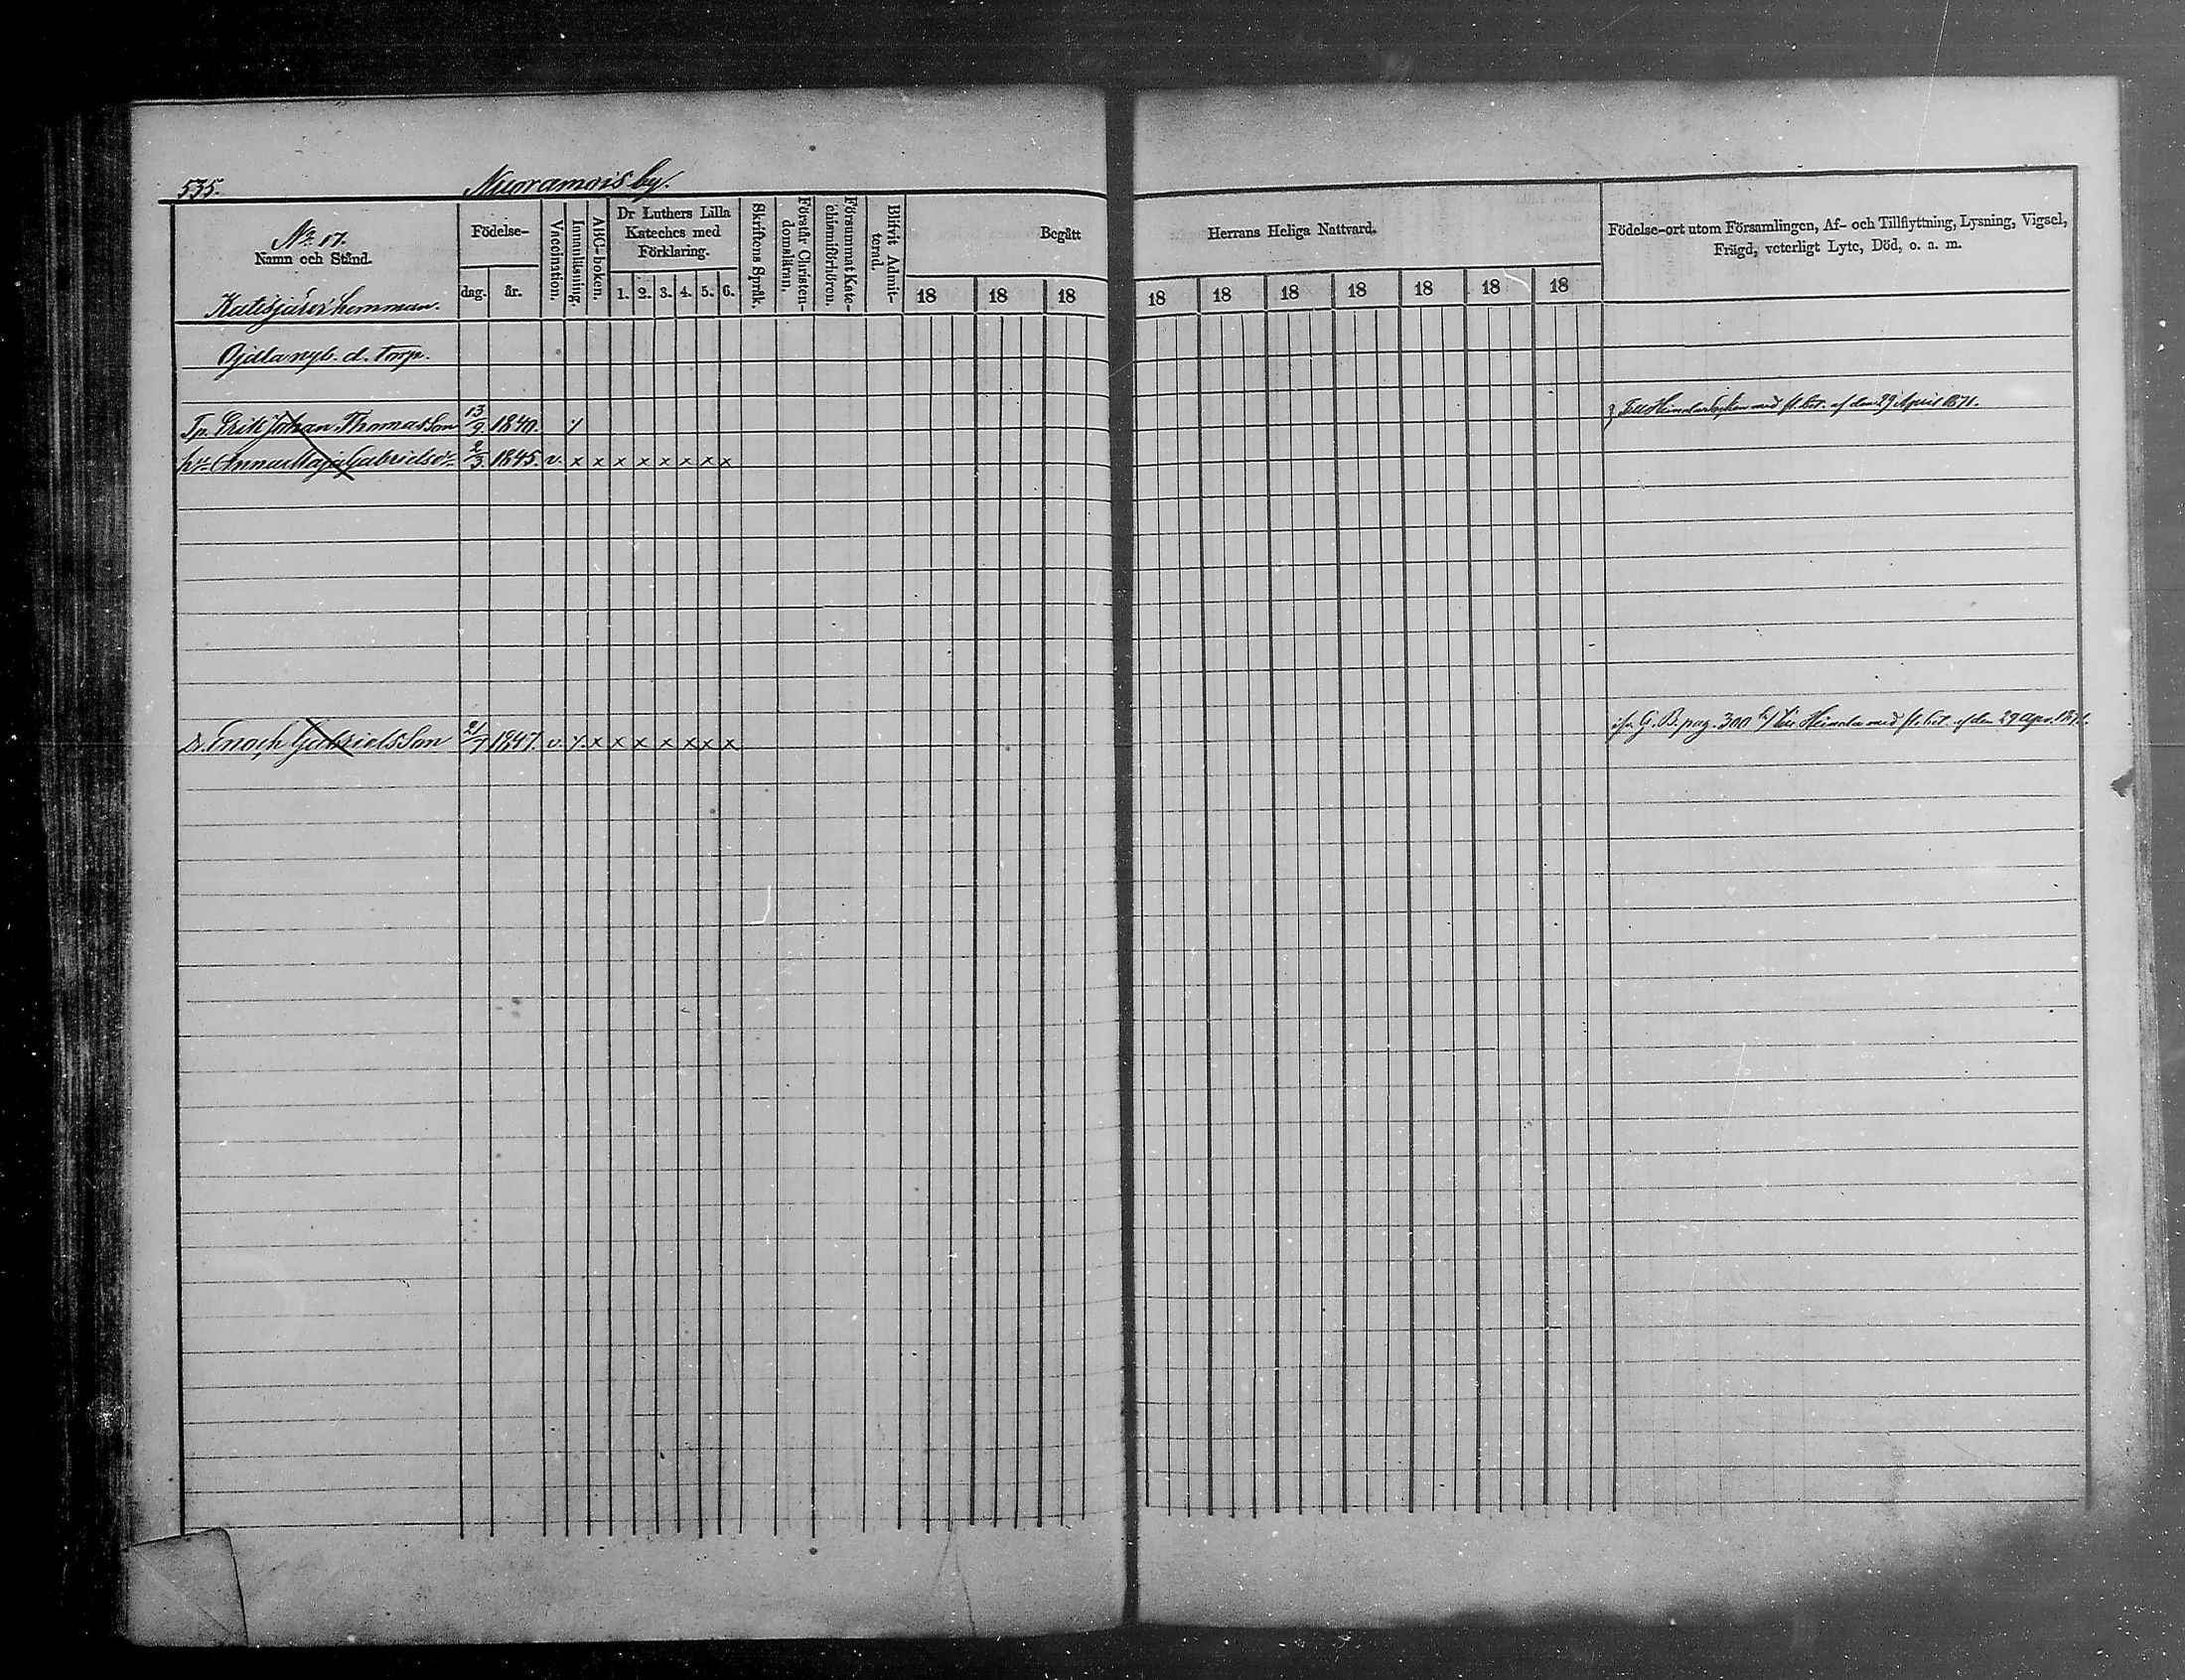 535.
Nuoramois by.
No. 17.
Namn och Stånd.
Födelse-
dag.
år.
Vaccination.
Innanläsning.
ABC-boken.
Dr Luthers Lilla
Kateches med
Förklaring.
1. 2. 3. 4. 5. 6.
Skriftens Språk.
Förstår Christen-
domsläran.
Försummat Kate-
chismiförhören.
Blifvit Admit-
terad.
Begått
Herrans Heliga Nattvard.
18 18 18 18 18 18 18 18 18 18
Födelse-ort utom Församlingen, Af- och Tillflyttning, Lysning, Vigsel,
Frägd, veterligt Lyte, Död, o. a. m.
hemman.
Ojala nyb. d. torp.
Tp. Erik Johan Thomasson 13/9 1840.
Till Heinola Socken med fl. bet. af den 29 April 1871.
hu Anna Maja Gabrielsdr 2/3 1845. v. x x x x x x x x
Dr. Enoch Gabrielsson 2/7 1847. v. x x x x x x x
G. B. pag. 300 Till Heinola med fl. bet. af den 29 Apr. 1871.